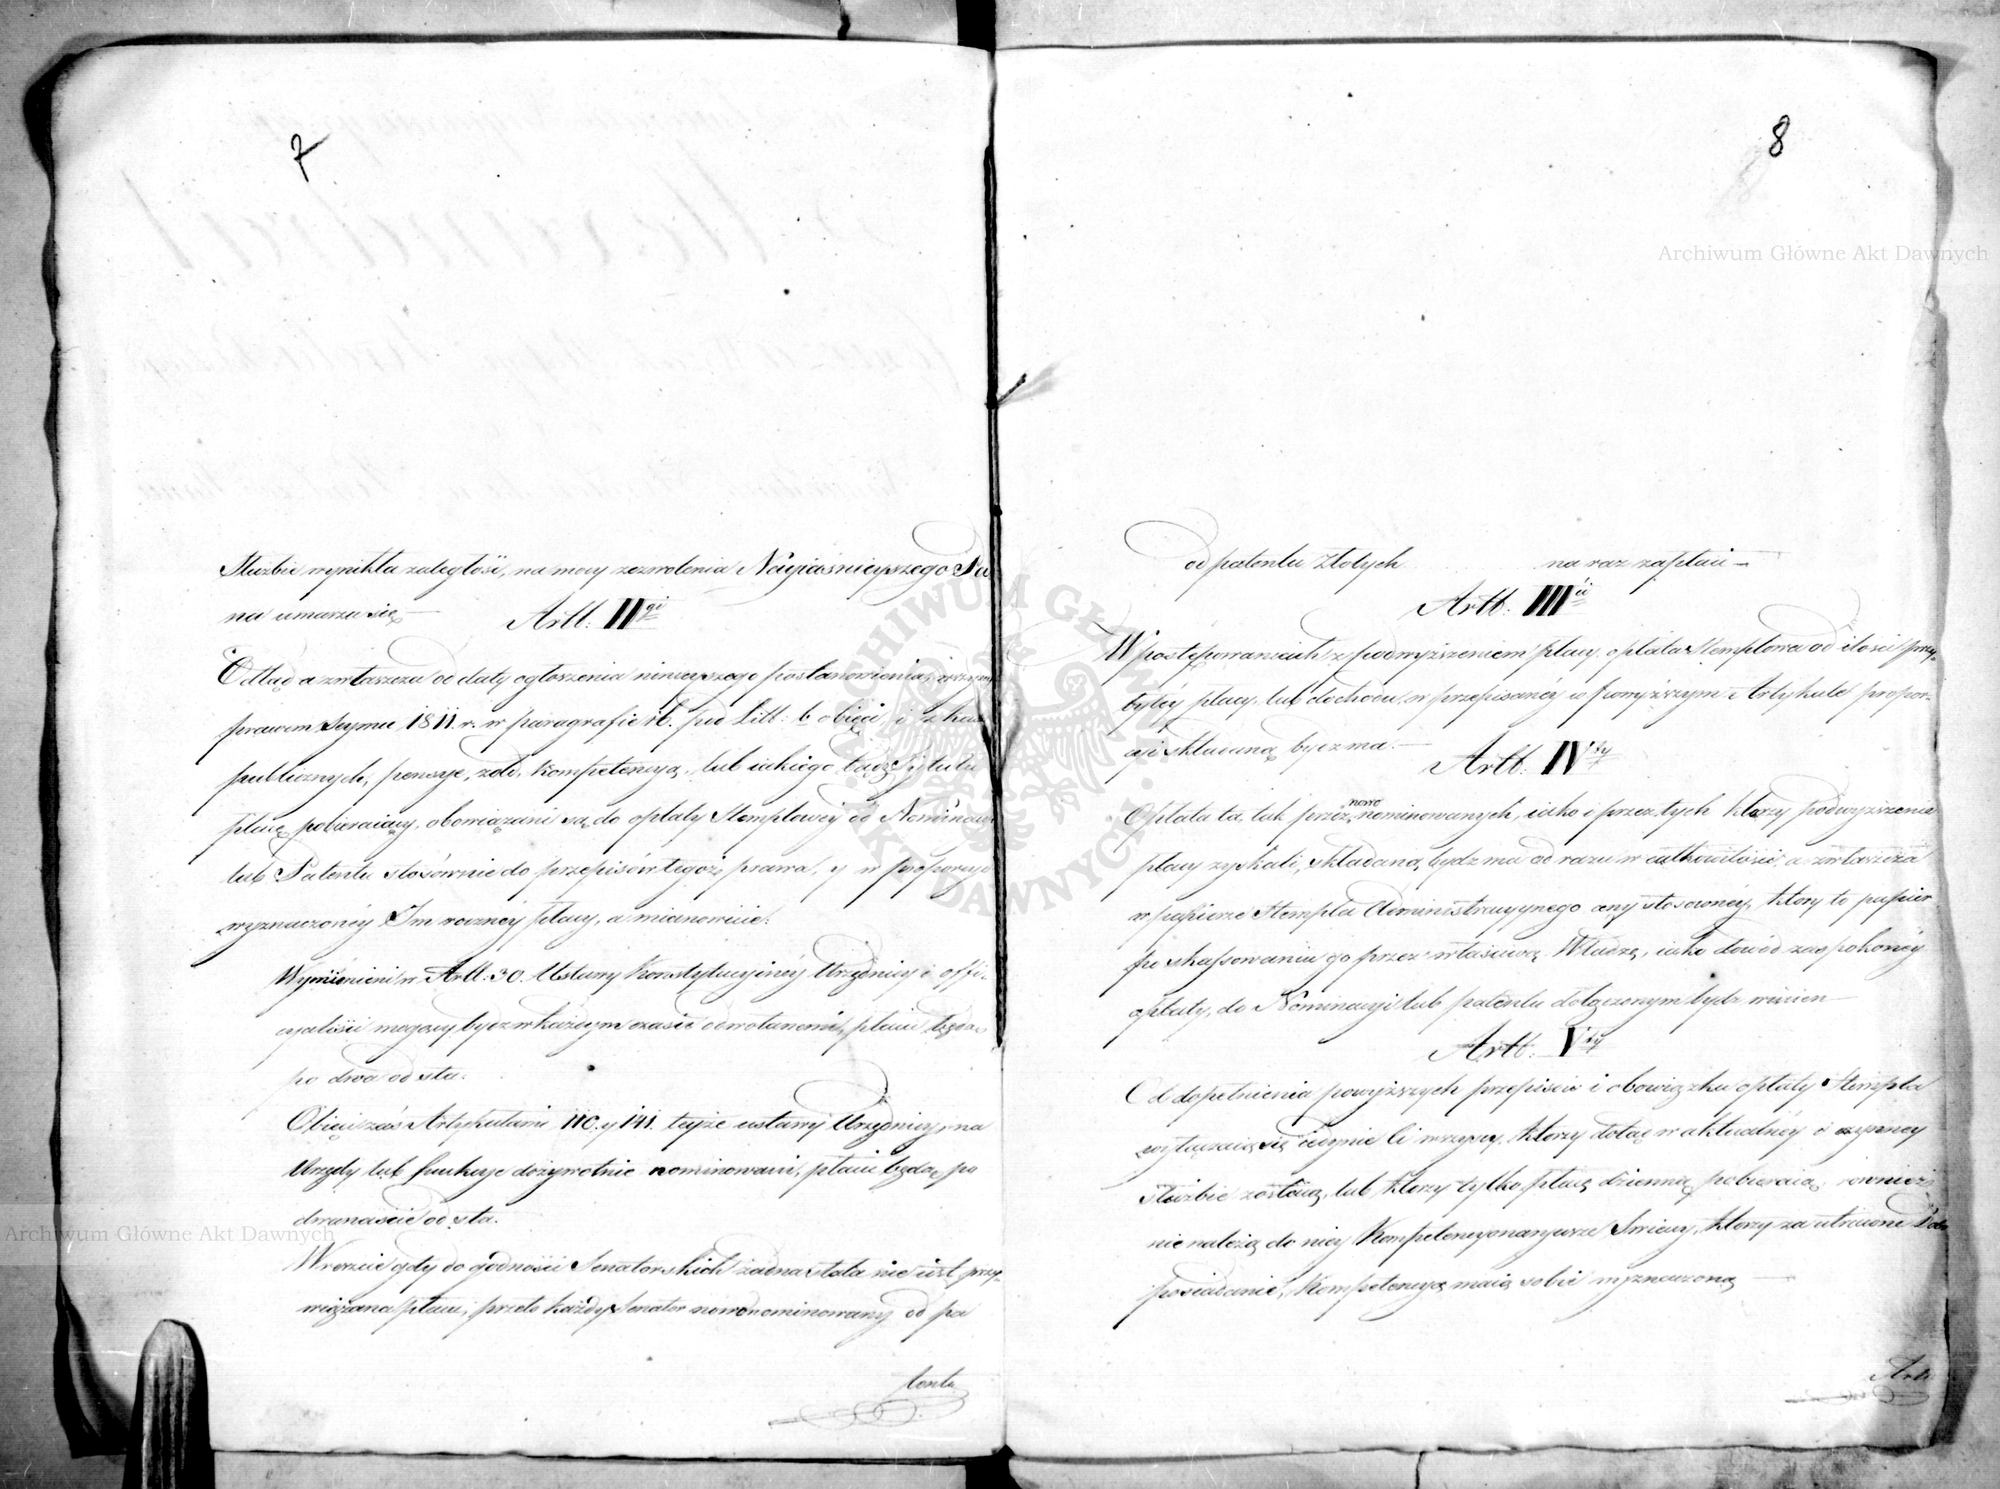 7
Służbie wynikła zaległość, na mocy zezwolenia Nayiaśnieyszego Pa
na umarza się. —
Artt. II gi
Odtąd a zwłaszcza od daty ogłoszenia ninieyszego postanowienia, wszyscy
prawem Seymu 1811 r. w paragrafie 16. pod Litt: b obięci, i z kass
publicznych, pensye, żołd, kompetencyą, lub iakiego bądź tytułu
płacę pobieraiący, obowiązani są do opłaty Stemplowéy od Nominacyi
lub Patentu stósownie do przepisów tegoż prawa, y w proporcyi
wyznaczonéy Im rocznéy płacy, a mianowicie:
Wymienieni w Artt. 30. Ustawy Konstytucyinéy Urzędnicy i offi-
cyaliści mogący bydź w każdym czasie odwołanemi, płacić będą
po dwa od sta.
Obięci zaś Artykułami 110. y 141. teyże ustawy Urzędnicy, na
Urzędy lub funkcye dożywotnie nominowani, płacić będą po
dwanaście od sta. —
Wreszcie gdy do godności Senatorskich żadna stała nie iest przy-
wiązana płaca, przeto każdy Senator nowonominowany od pa
tentu
8
od patentu Złotych na raz zapłaci —
Artt: III ci
W postępowaniach z podwyższeniem płacy, opłata Stemplowa od ilości przy-
bytéy płacy, lub dochodu, w przepisanéy w powyższym Artykule propor-
cyi składaną bydź ma. —
Artt. IV ty
Opłata ta, tak przez nowo nominowanych, iako i przez tych którzy podwyższenie
płacy zyskali, składaną bydź ma od razu w całkowitości, a zwłaszcza
w papierze Stempla Administracyynego ceny stosownéy, który to papier
po skassowaniu go przez właściwą Władzę, iako dowód zaspokoionéy
opłaty, do Nominacyi lub patentu dołączonym bydź winien —
Artt. V ty
Od dopełnienia powyższych przepisów i obowiązku opłaty Stempla
wyłączaią się iedynie ci wszyscy, którzy dotąd w aktualnéy i czynney
służbie zostaią, lub którzy tylko płacę dzienną pobieraią; również
nie należą do niey Kompetencyonaryusze Świeccy, którzy za utracone Dóbr
posiadanie, Kompetencyą maią sobie wyznaczoną —
Artt
Archiwum Główne Akt Dawnych
Archiwum Główne Akt Dawnych
ARCHIWUM GŁÓWNE AKT DAWNYCH